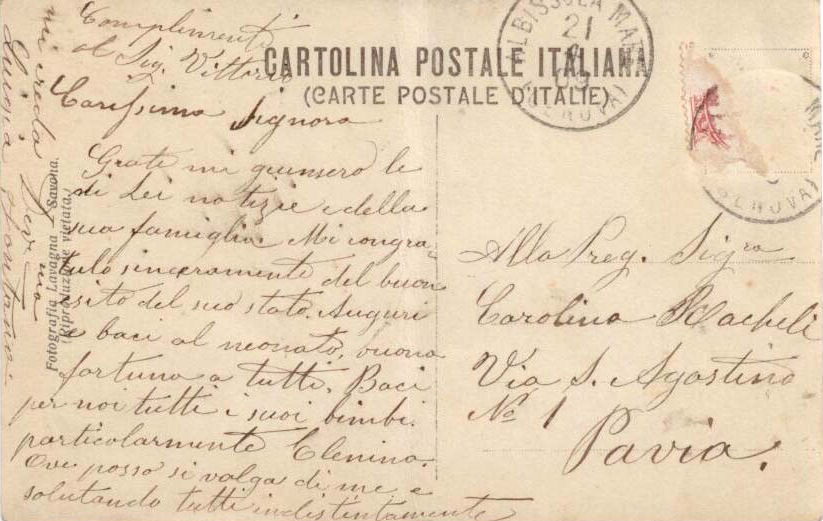 Complimenti
al Sig. Vittorio
CARTOLINA POSTALE ITALIANA
(CARTE POSTALE D'ITALIE)
ALBISSOLA MAR
21
(GENOVA)
MAR
GENOVA)
Carissima Signora
Grate mi giunsero le
di Lei notizie e della
sua famiglia. Mi congra-
tulo sinceramente del buon
esito del suo stato. Auguri
e baci al neonato, buona
fortuna a tutti. Baci
per noi tutti i suoi bimbi.
particolarmente Elenina.
Ove posso si valga di me e
salutando tutti indistintamente
mi creda Dev. ma
Luigia Fontana.
Fotografia Lavagna - Savona.
(Riproduzione vietata.)
Alla Preg. Sigra
Carolina Racheli
Via S. Agostino
No 1
Pavia.